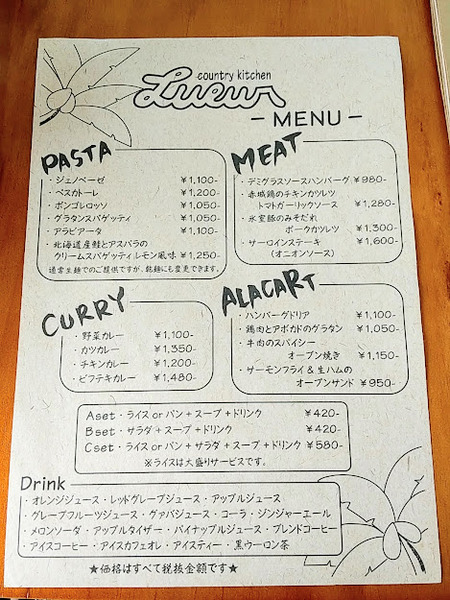 country kitchen
Lueur
- MENU -
PASTA
・ジェノベーゼ ￥1,100-
・ペスカトーレ ￥1,200-
・ボンゴレロッソ ￥1,050-
・グラタンスパゲッティ ￥1,050-
・アラビアータ ￥1,100-
・北海道産鮭とアスパラの
クリームスパゲッティレモン風味 ￥1,250-
通常生麺でのご提供ですが、乾麺にも変更できます。
MEAT
・デミグラスソースハンバーグ ￥980-
・赤城鶏のチキンカツレツ
トマトガーリックソース ￥1,280-
・氷室豚のみそだれ
ポークカツレツ ￥1,300-
・サーロインステーキ ￥1,600-
(オニオンソース)
CURRY
・野菜カレー ￥1,100-
・カツカレー ￥1,350-
・チキンカレー ￥1,200-
・ビフテキカレー ￥1,480-
ALACART
・ハンバーグドリア ￥1,100-
・鶏肉とアボカドのグラタン ￥1,050-
・牛肉のスパイシー
オーブン焼き ￥1,150-
・サーモンフライ＆生ハムの
オーブンサンド ￥950-
Aset・ライス or パン＋スープ＋ドリンク ￥420-
Bset・サラダ＋スープ＋ドリンク ￥420-
Cset・ライス or パン＋サラダ＋スープ＋ドリンク ￥580-
※ライスは大盛りサービスです。
Drink
・オレンジジュース・レッドグレープジュース・アップルジュース
・グレープフルーツジュース・グァバジュース・コーラ・ジンジャーエール
・メロンソーダ・アップルタイザー・パイナップルジュース・ブレンドコーヒー
・アイスコーヒー・アイスカフェオレ・アイスティー・黒ウーロン茶
★価格はすべて税抜金額です★